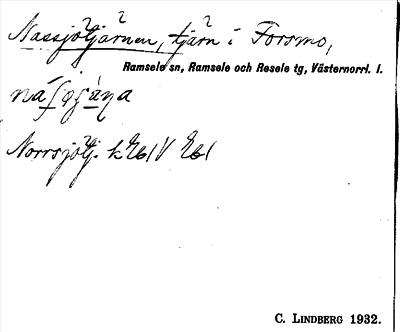 Nassjötjärnen, tjärn i Forsmo,
Ramsele sn, Ramsele och Resele tg, Västernorrl. l.
Norrsjötj. k
C. LINDBERG 1932.